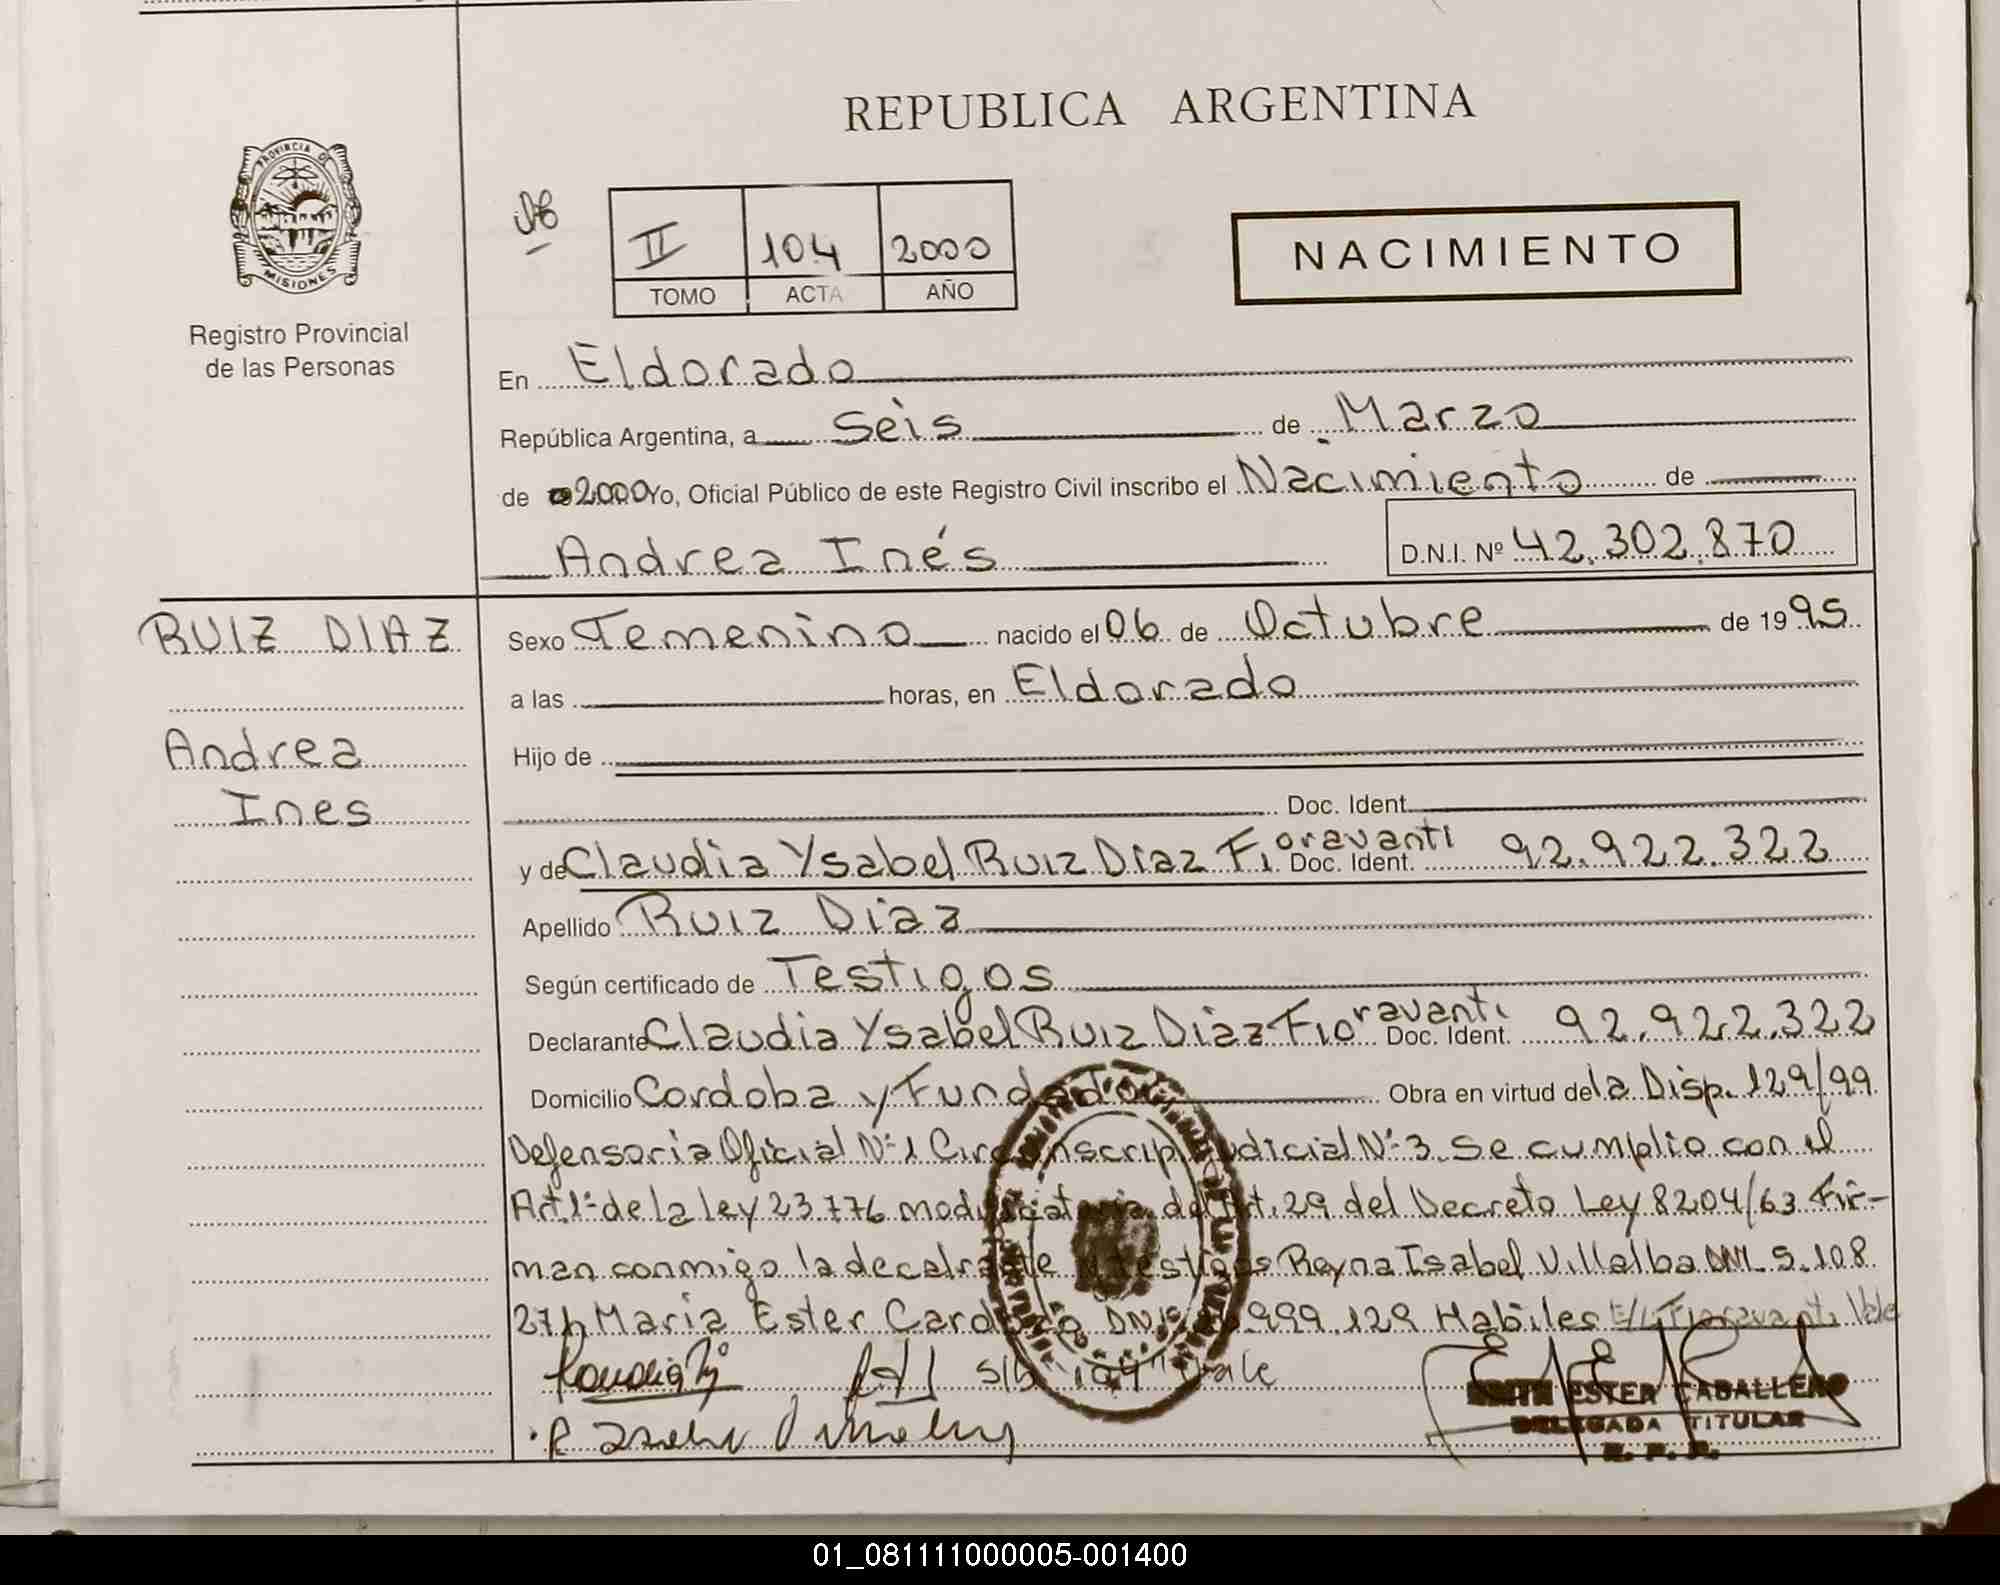 REPUBLICA ARGENTINA
PROVINCIA DE
MISIONES
Registro Provincial
de las Personas
II 104 2000
TOMO ACTA AÑO
NACIMIENTO
En Eldorado
República Argentina, a Seis de Marzo
de 2000 Yo, Oficial Público de este Registro Civil inscribo el Nacimiento de
Andrea Inés D.N.I. Nº 42.302.870
RUIZ DIAZ
Andrea
Ines
Sexo Femenino nacido el 06 de Octubre de 1995
a las horas, en Eldorado
Hijo de
Doc. Ident.
y de Claudia Ysabel Ruiz Diaz Fioravanti Doc. Ident. 92.922.322
Apellido Ruiz Diaz
Según certificado de Testigos
Declarante Claudia Ysabel Ruiz Diaz Fioravanti Doc. Ident. 92.922.322
Domicilio Cordoba y Fundador Obra en virtud de la Disp. 129/99
Defensoria Oficial Nº 1 Circunscrip. Judicial Nº 3. Se cumplio con el
Art. 1º de la ley 23.776 modificatoria del Art. 29 del Decreto Ley 8204/63 Fir-
man conmigo la decalrante testigos Reyna Isabel Villalba DNI. 5.108.
276 Maria Ester DNI 999.129 Habiles E/L Fioravanti Vale
S/b "104" Vale
EDITH ESTER CABALLERO
DELEGADA TITULAR
R. P. P.
01_081111000005-001400